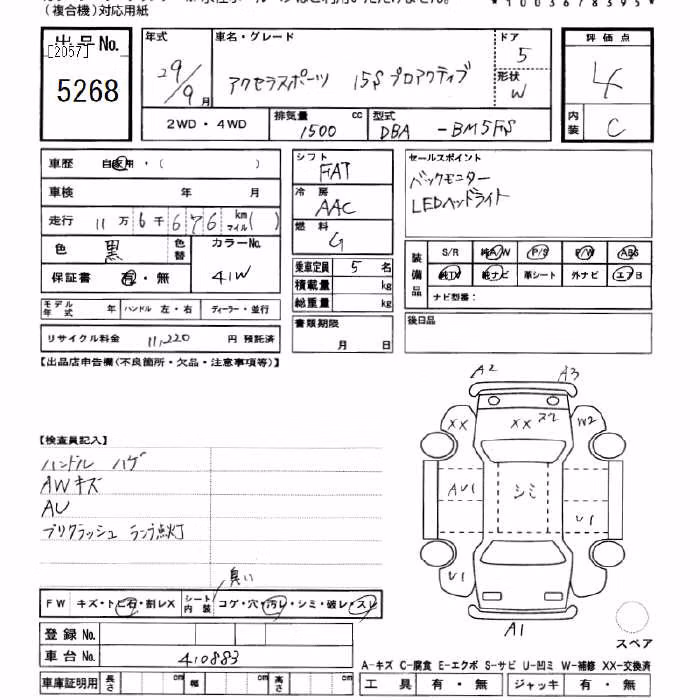 (複合機)対応用紙
*1003678395*
出品No.
[2057]
5268
年式
29/9月
車名・グレード
アクセラスポーツ 15S プロアクティブ
ドア
5
形状
W
2WD・4WD
排気量
1500
cc
型式
DBA -BM5FS
評価点
4
内装
C
車歴 自家用・( )
車検 年 月
走行 11万6千676 km マイル( )
色 黒 色替
カラーNo.
41W
保証書 有・無
モデル年式 年 ハンドル 左・右 ディーラー・並行
リサイクル料金 11,220 円 預託済
シフト
FAT
冷房
AAC
燃料
G
乗車定員 5 名
積載量 kg
総重量 kg
書類期限
月 日
セールスポイント
バックモニター
LEDヘッドライト
装備品
S/R 純A/W P/S P/W ABS
純TV 純ナビ 革シート 外ナビ エアB
ナビ型番:
後日品
【出品店申告欄(不良箇所・欠品・注意事項等)】
【検査員記入】
ハンドル ハゲ
AWキズ
AU
プリクラッシュ ランプ点灯
A2
A3
XX
XX
W2
AU1
シミ
U1
U1
A1
スペア
臭い
FW キズ・トビ石・割レX
シート内装 コゲ・穴・汚レ・シミ・破レ・スレ
登録No.
車台No. 410883
車庫証明用 長さ cm 幅 cm 高さ cm
A-キズ C-腐食 E-エクボ S-サビ U-凹ミ W-補修 XX-交換済
工具 有・無 ジャッキ 有・無